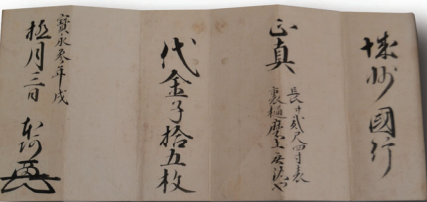 城州國行
正真
長サ貳尺四寸表
裏樋磨上無銘也
代金子拾五枚
寳永参年戌
極月三日 本阿